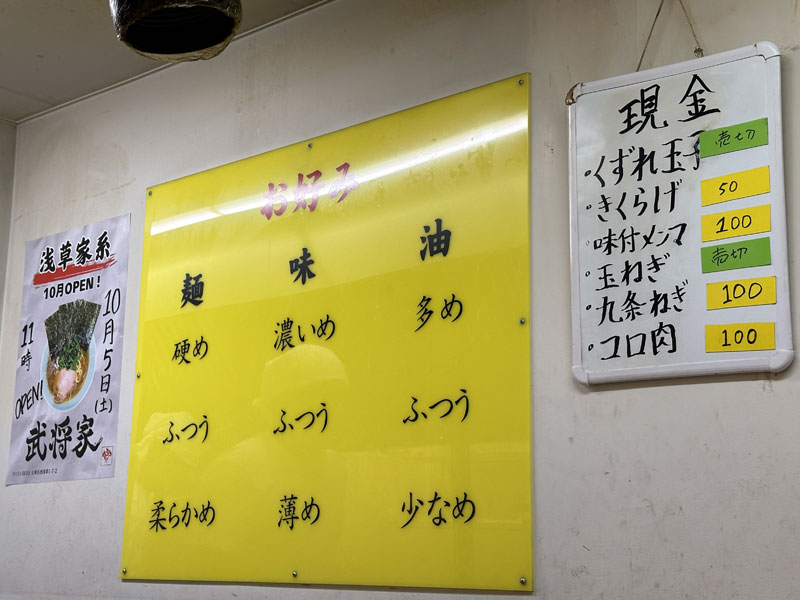 浅草家系
10月OPEN！
10月5日(土)
11時
OPEN!
武将家
お好み
麺 味 油
硬め 濃いめ 多め
ふつう ふつう ふつう
柔らかめ 薄め 少なめ
現金
・くずれ玉子 売切
・きくらげ 50
・味付メンマ 100
・玉ねぎ 売切
・九条ねぎ 100
・コロ肉 100